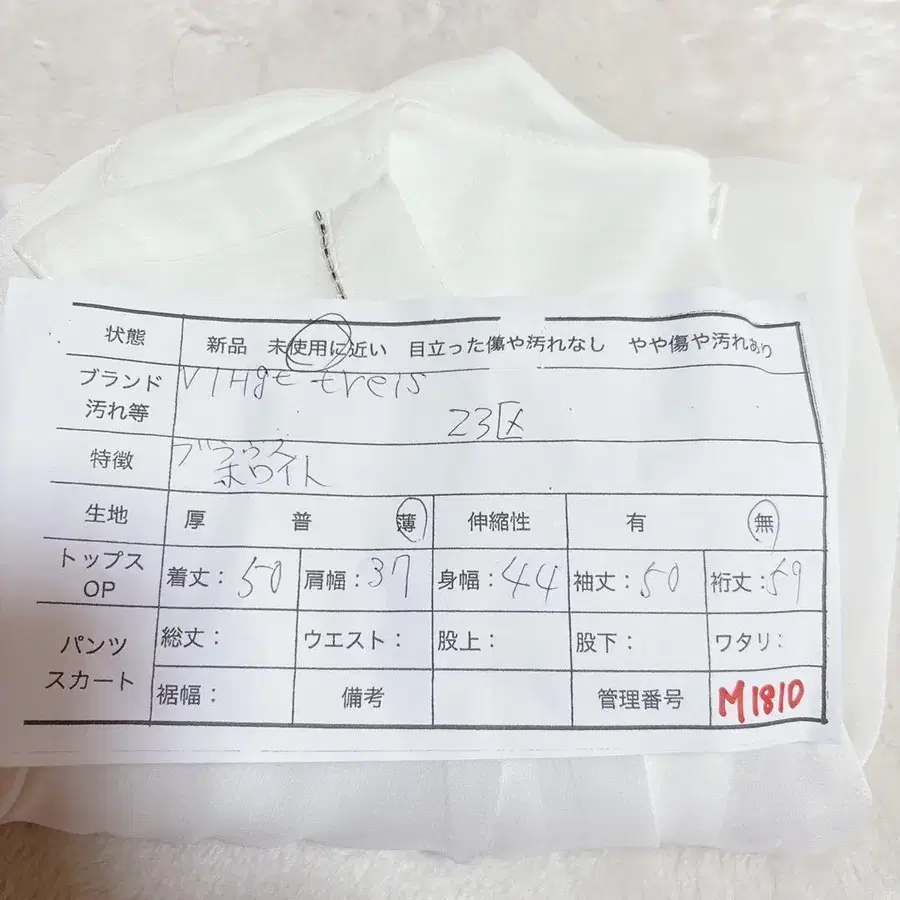 状態 新品 未使用に近い 目立った傷や汚れなし やや傷や汚れあり
ブランド 汚れ等 VIngt treis
23区
特徴 ブラウス
ホワイト
生地 厚 普 薄 伸縮性 有 無
トップス OP 着丈：50 肩幅：37 身幅：44 袖丈：50 裄丈：59
パンツ スカート 総丈： ウエスト： 股上： 股下： ワタリ：
裾幅： 備考 管理番号 M1810